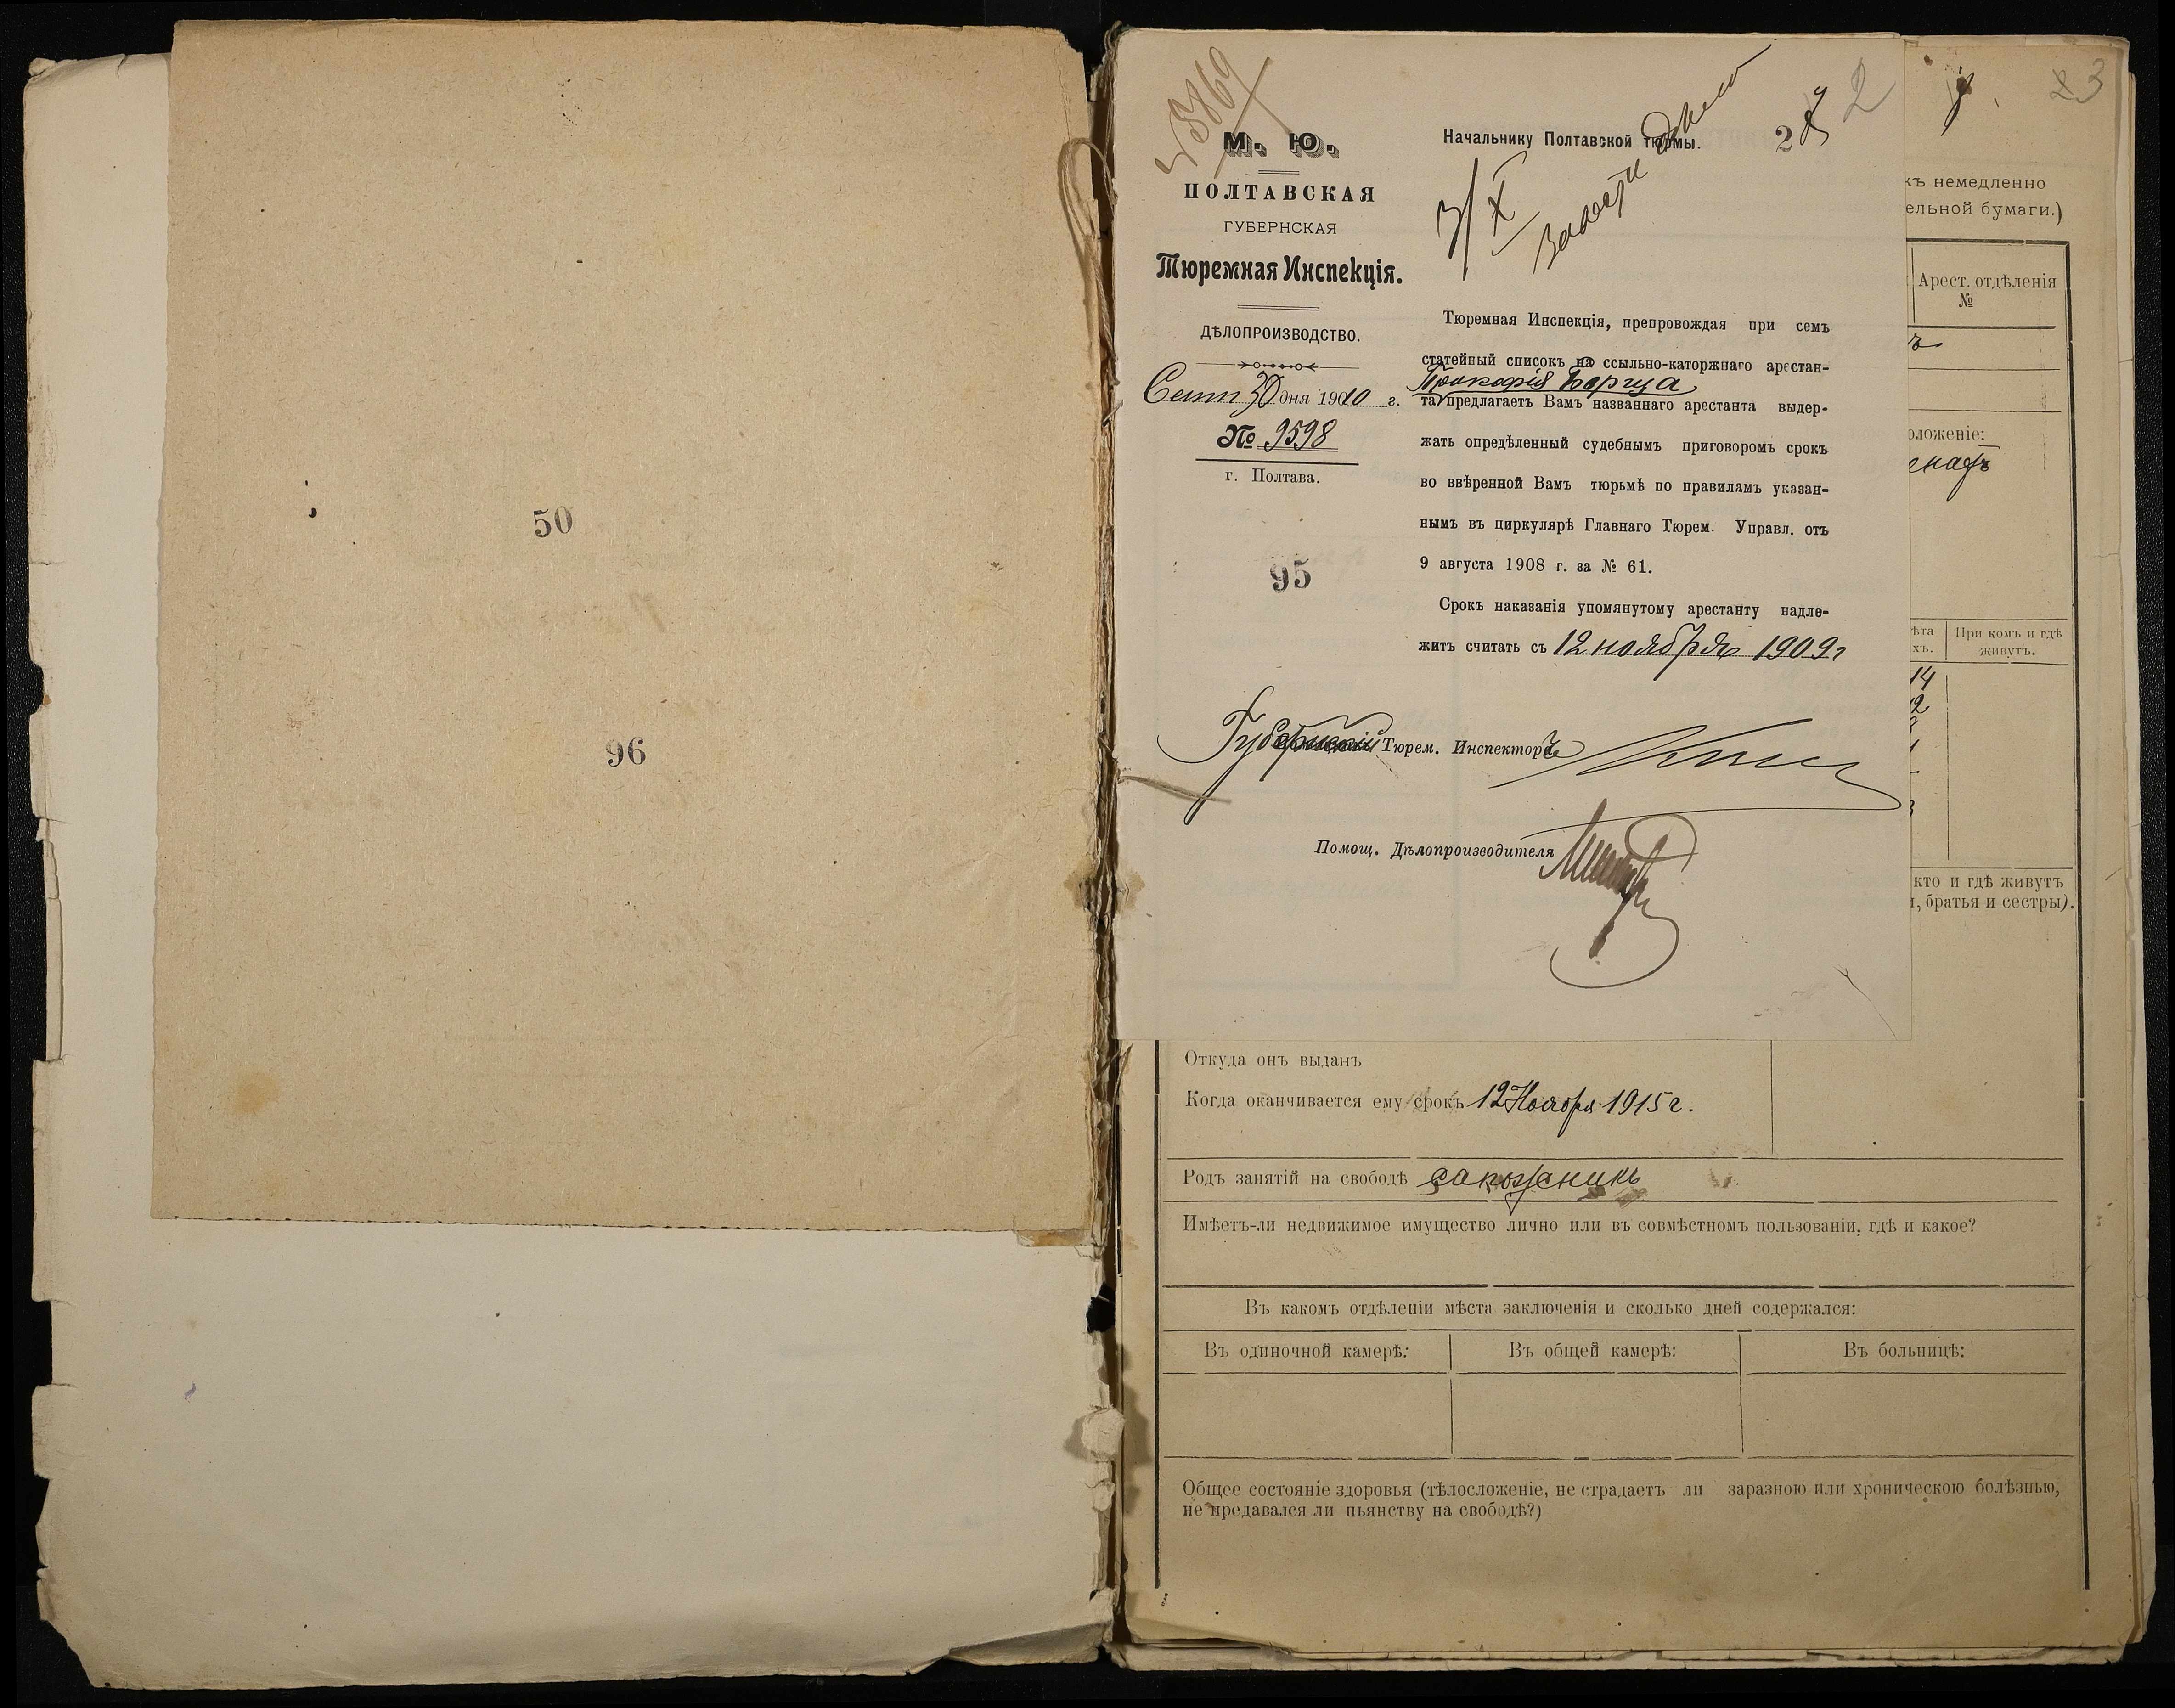 50
96
3869
М. Ю.
ПОЛТАВСКАЯ
ГУБЕРНСКАЯ
Тюремная Инспекція.
ДѢЛОПРОИЗВОДСТВО.
Сент 30 дня 1910 г.
№ 9598
г. Полтава.
95
Начальнику Полтавской тюрмы.
2
2
3/X
Завести дѣло
Тюремная Инспекція, препровождая при семъ
статейный списокъ на ссыльно-каторжнаго арестан-
Прокофія Борща
та предлагаетъ Вамъ названнаго арестанта выдер-
жать опредѣленный судебнымъ приговоромъ срокъ
во ввѣренной Вамъ тюрьмѣ по правиламъ указан-
нымъ въ циркулярѣ Главнаго Тюрем. Управл. отъ
9 августа 1908 г. за № 61.
Срокъ наказанія упомянутому арестанту надле-
житъ считать съ 12 ноября 1909 г
Губернскій Тюрем. Инспекторъ
Помощ. Дѣлопроизводителя
3
къ немедленно
ельной бумаги.)
Арест. отдѣленія
№
оложеніе:
ѣта
хъ.
При комъ и гдѣ
живутъ.
14
2
кто и гдѣ живутъ
и, братья и сестры).
Откуда онъ выданъ
Когда оканчивается ему срокъ 12 Ноября 1915 г.
Родъ занятій на свободѣ сапожникъ
Имѣетъ-ли недвижимое имущество лично или въ совмѣстномъ пользованіи, гдѣ и какое?
Въ какомъ отдѣленіи мѣста заключенія и сколько дней содержался:
Въ одиночной камерѣ:
Въ общей камерѣ:
Въ больницѣ:
Общее состояніе здоровья (тѣлосложеніе, не страдаетъ ли заразною или хроническою болѣзнью,
не предавался ли пьянству на свободѣ?)